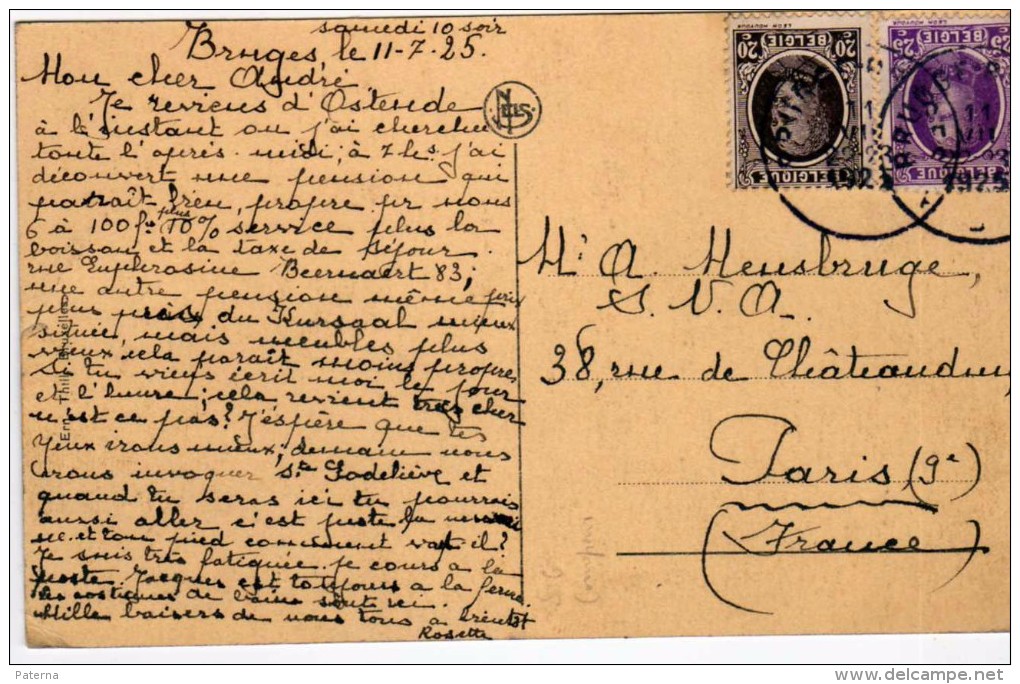 samedi 10 soir
Bruges, le 11-7-25.
Mon cher André
Je reviens d'Ostende
à l'instant ou j'ai cherché
toute l'après-midi; à 7 hs j'ai
découvert une pension qui
paraît bien, propre pr nous
6 à 100 frs plus 10% service plus la
boisson et la taxe de séjour.
rue Euphrasine Beernaert 83;
une autre pension même prix
plus près du Kursaal mieux
située, mais meubles plus
vieux cela paraît moins propre
Si tu viens écrit moi le jour
et l'heure; cela revient très cher
n'est ce pas? J'espère que tes
yeux irons mieux; demain nous
irons invoquer Ste Godeliève et
quand tu seras ici tu pourrais
aussi aller c'est juste la
et ton pied comment va-t-il?
Je suis très fatiguée je cours a la
poste. Jacques est toujours a la ferme.
les costumes de bains sont ici.
Mille baisers de nous tous a bientôt
Rosette
NELS
Ern. Thill, Bruxelles
20 BELGIE 20
BELGIQUE
25 BELGIE 25
BRUGGE
11 VII
1925
Mr A. Mensbruge,
S. V. A.
38, rue de Châteaudun
Paris (9e)
(France)
Paterna
delcampe.net